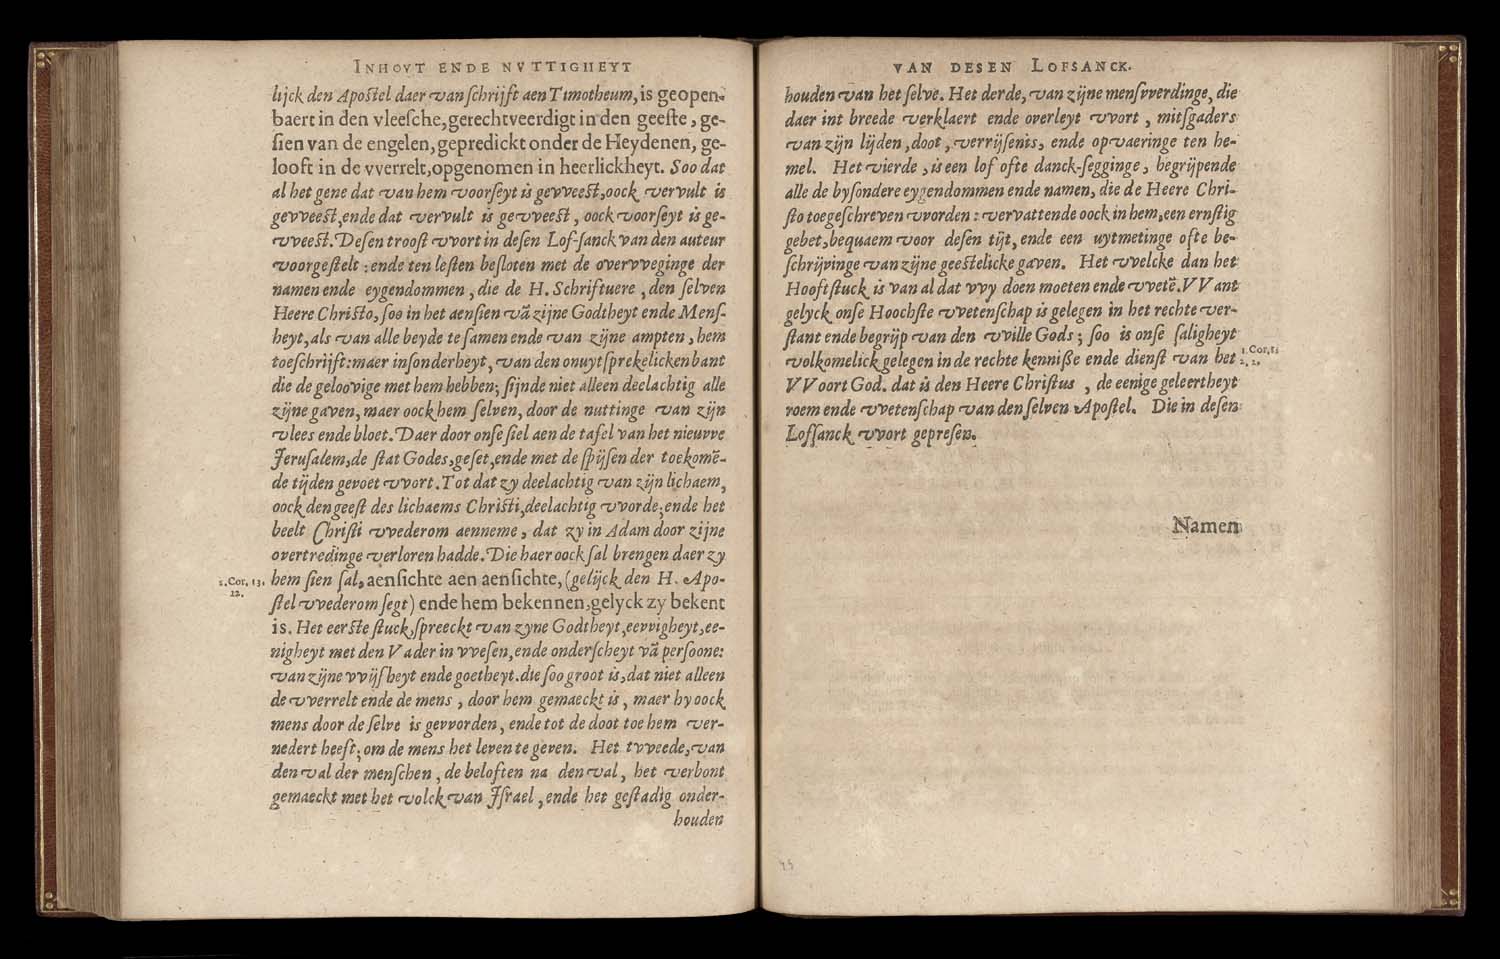 INHOVT ENDE NVTTIGHEYT
lijck den Apostel daer van schrijft aen Timotheum, is geopen-
baert in den vleesche, gerechtveerdigt in den geeste, ge-
sien van de engelen, gepredickt onder de Heydenen, ge-
looft in de vverrelt, opgenomen in heerlickheyt. Soo dat
al het gene dat van hem voorseyt is gevveest, oock vervult is
gevveest, ende dat vervult is gevveest, oock voorseyt is ge-
vveest. Desen troost vvort in desen Lof-sanck van den auteur
voorgestelt: ende ten lesten besloten met de overvveginge der
namen ende eygendommen, die de H. Schriftuere, den selven
Heere Christo, soo in het aensien vã zijne Godtheyt ende Mens-
heyt, als van alle beyde te samen ende van zijne ampten, hem
toeschrijft: maer insonderheyt, van den onuytsprekelicken bant
die de geloovige met hem hebben; sijnde niet alleen deelachtig alle
zijne gaven, maer oock hem selven, door de nuttinge van zijn
vlees ende bloet. Daer door onse siel aen de tafel van het nieuvve
Jerusalem, de stat Godes, geset, ende met de spijsen der toekomẽ-
de tijden gevoet vvort. Tot dat zy deelachtig van zijn lichaem,
oock den geest des lichaems Christi, deelachtig vvorde; ende het
beelt Christi vvederom aenneme, dat zy in Adam door zijne
overtredinge verloren hadde. Die haer oock sal brengen daer zy
1. Cor. 13. 12.
hem sien sal, aensichte aen aensichte, (gelijck den H. Apo-
stel vvederom segt) ende hem bekennen, gelyck zy bekent
is. Het eerste stuck, spreeckt van zyne Godtheyt, eevvigheyt, ee-
nigheyt met den Vader in vvesen, ende onderscheyt vã persoone:
van zijne vvijsheyt ende goetheyt. die soo groot is, dat niet alleen
de vverrelt ende de mens, door hem gemaeckt is, maer hy oock
mens door de selve is gevvorden, ende tot de doot toe hem ver-
nedert heeft; om de mens het leven te geven. Het tvveede, van
den val der menschen, de beloften na den val, het verbont
gemaeckt met het volck van Jsrael, ende het gestadig onder-
houden
VAN DESEN LOFSANCK.
houden van het selve. Het derde, van zijne mensvverdinge, die
daer int breede verklaert ende overleyt vvort, mitsgaders
van zijn lijden, doot, verrijsenis, ende opvaeringe ten he-
mel. Het vierde, is een lof ofte danck-segginge, begrijpende
alle de bysondere eygendommen ende namen, die de Heere Chri-
sto toegeschreven vvorden: vervattende oock in hem, een ernstig
gebet, bequaem voor desen tijt, ende een uytmetinge ofte be-
schrijvinge van zijne geestelicke gaven. Het vvelcke dan het
Hooftstuck is van al dat vvy doen moeten ende vvetẽ. VVant
gelyck onse Hoochste vvetenschap is gelegen in het rechte ver-
stant ende begrijp van den vville Gods; soo is onse saligheyt
volkomelick gelegen in de rechte kennisse ende dienst van het
1. Cor,
2. 2.
VVoort God. dat is den Heere Christus, de eenige geleertheyt
roem ende vvetenschap van den selven Apostel. Die in desen
Lofsanck vvort gepresen.
Namen
45